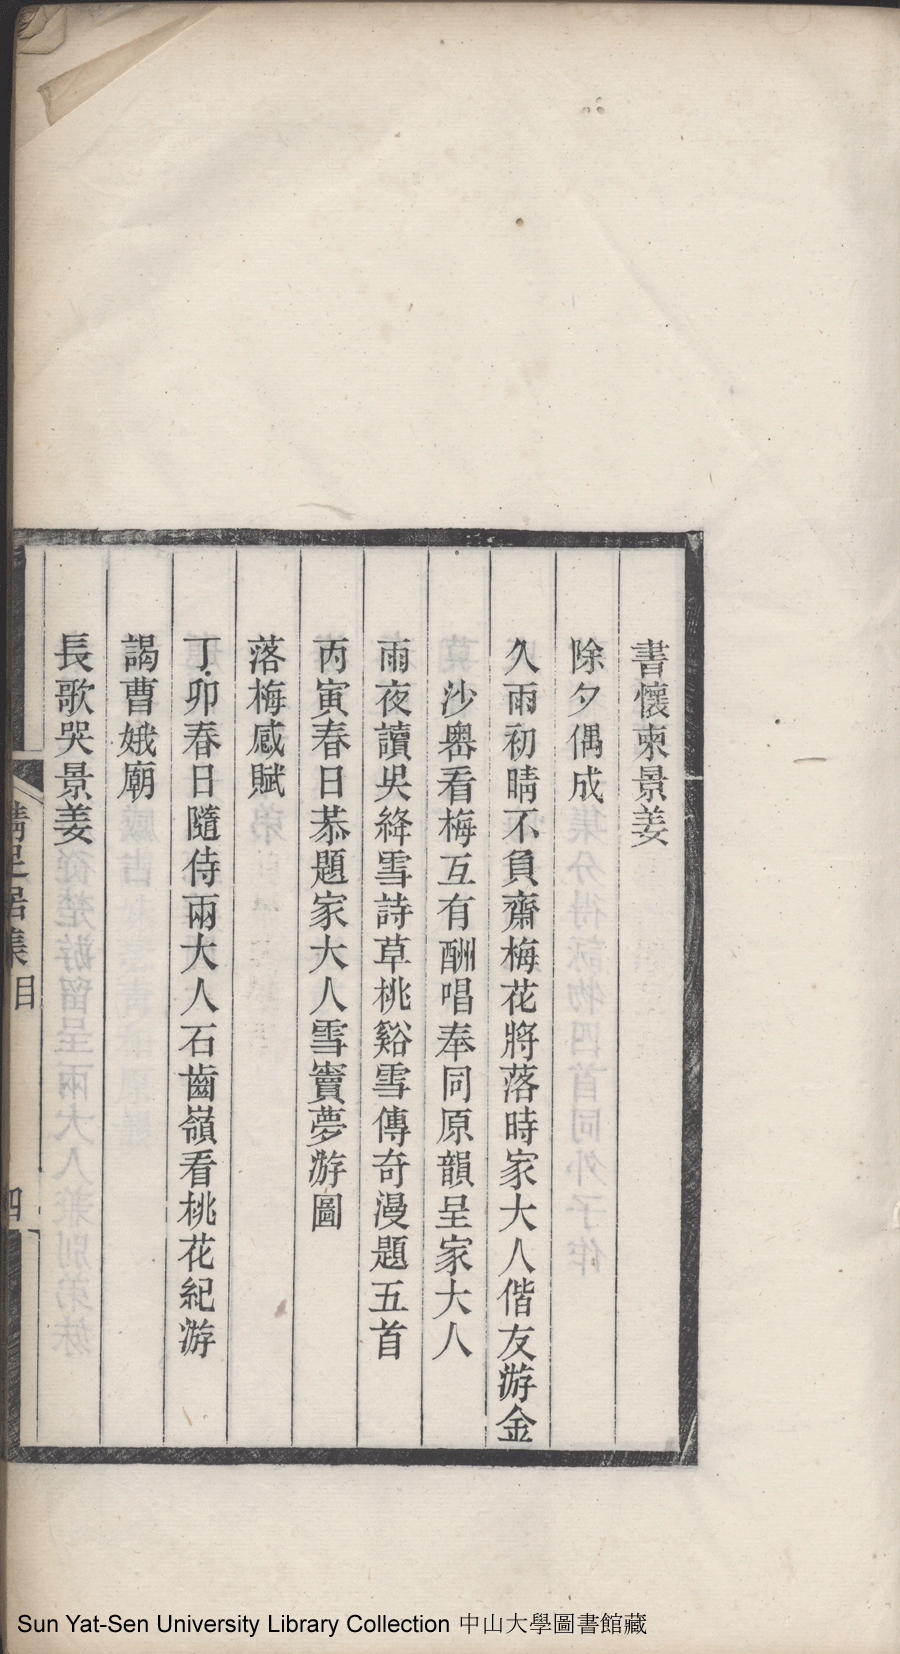 書懷柬景姜
除夕偶成
久雨初晴不負齋梅花將落時家大人偕友游金
沙嶴看梅互有酬唱奉同原韻呈家大人
雨夜讀吳絳雪詩草桃谿雪傳奇漫題五首
丙寅春日恭題家大人雪竇夢游圖
落梅感賦
丁卯春日隨侍兩大人石齒嶺看桃花紀游
謁曹娥廟
長歌哭景姜
居集 目
四
Sun Yat-Sen University Library Collection 中山大學圖書館藏